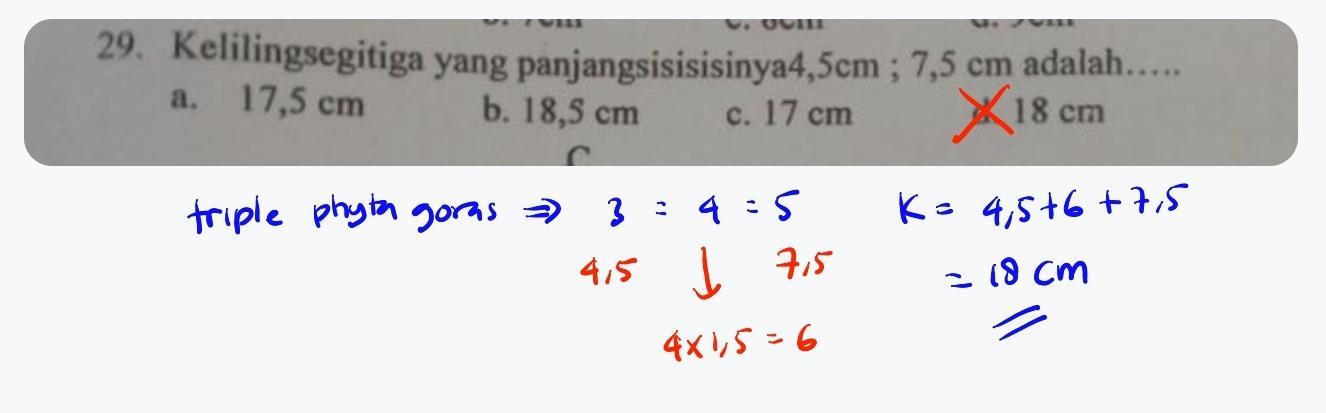 29. Kelilingsegitiga yang panjangsisisisinya4,5cm ; 7,5 cm adalah.....
a. 17,5 cm b. 18,5 cm c. 17 cm d. 18 cm
triple phytagoras ⇒ 3 : 4 : 5
4,5 ↓ 7,5
4x1,5 = 6
K = 4,5+6+7,5
= 18 cm